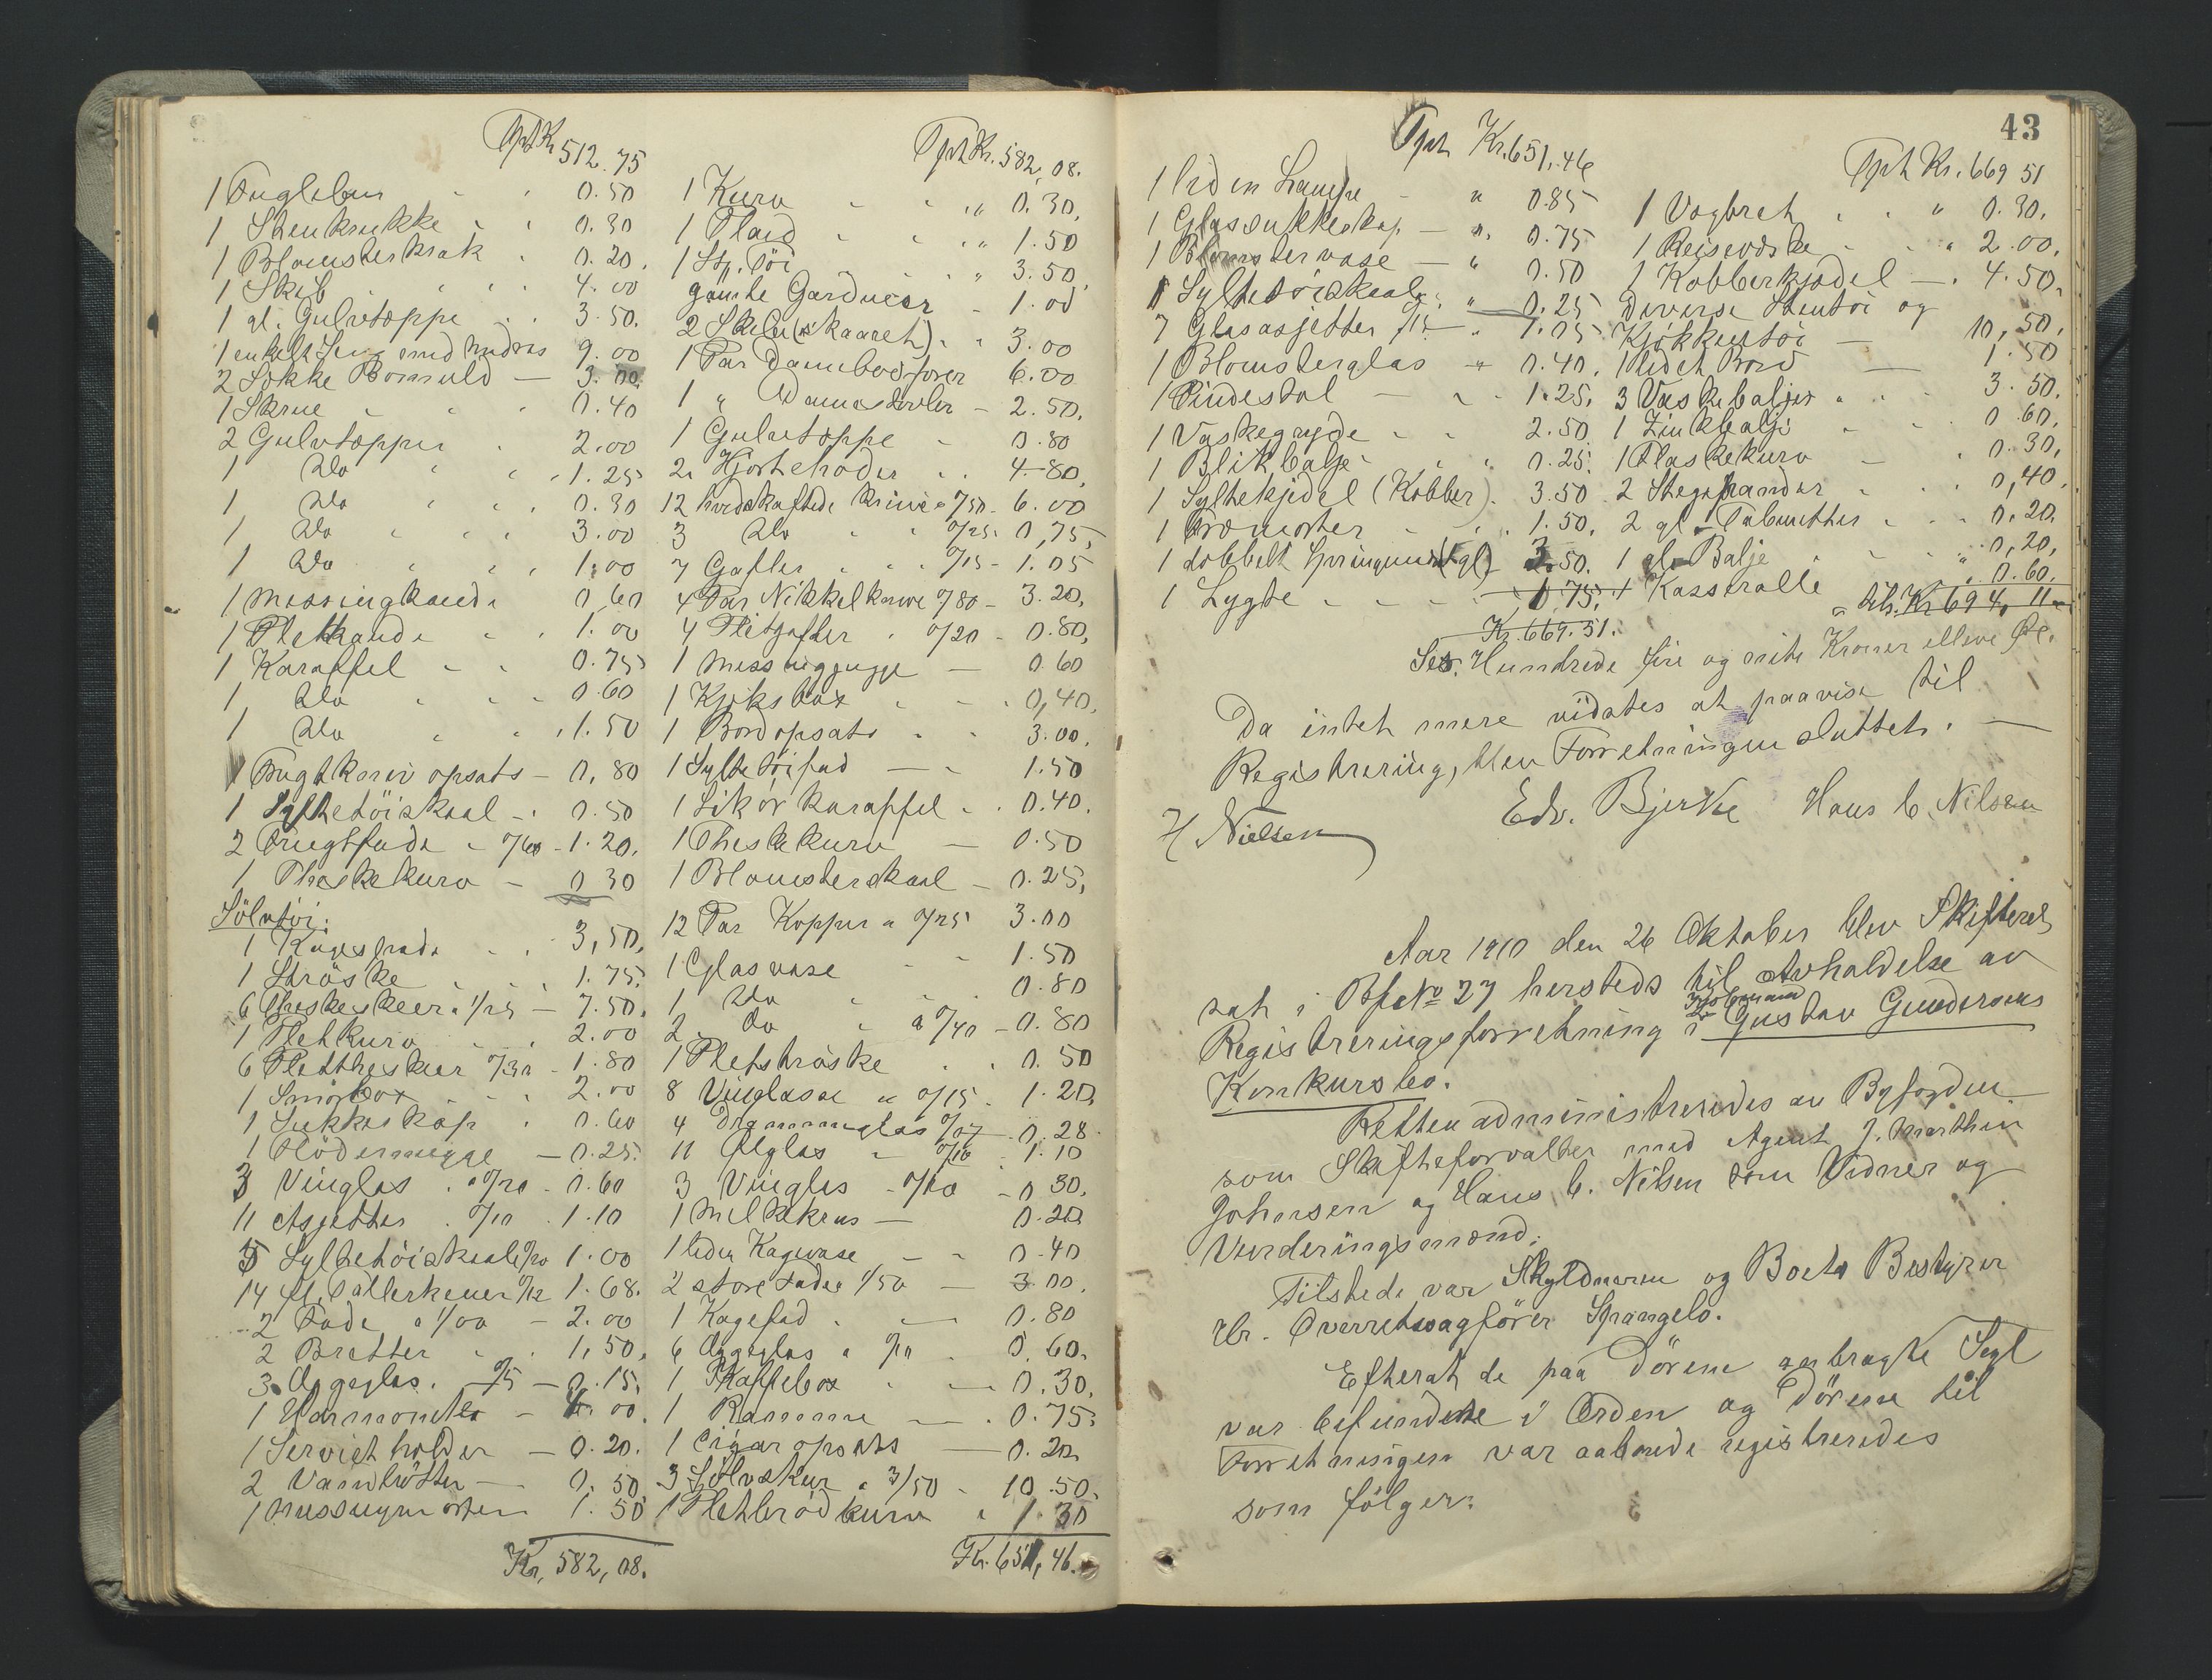 Tpt Kr. 512.75
1 Fuglebur " " 0.50
1 Stenkrukke " " 0.30
1 Blomsterkrak " 0.20.
1 Skib " " " 4.00
1 gl. Gulvtæppe " " 3.50.
1 enkelt Seng med Madras 9.00
2 Sække Bomuld — 3.00.
1 Skrue " " " 0.40
2 Gulvtæpper " 2.00
1 Do " " 1.25
1 Do " " 0.30
1 Do " " " 3.00
1 Do " " " 1.00
1 Messingkande 0.60
1 Pletkande " " 1.00
1 Karaffel - " 0.75
1 Do " " 0.60
1 Do " " 1.50
1 Frugtkurv opsats - 0.80
1 Syltetöiskaal - " 0.50
2 Frugtfade " 0/60 - 1.20.
1 Theskekurv - 0.30
Sölvtöi:
1 Kagespade " " 3,50.
1 Ströske " " 1.75.
6 Theskeskeer a 1/25 — 7.50.
1 Pletkurv " 2.00
6 Pletttheskeer 0/30 - 1.80
1 Smörbox " " 2.00
1 Sukkerskap " 0.60
1 Flödemugge — 0.25.
3 Vinglas " a 0/20 - 0.60
11 Asjetter " 0/10 . 1.10
5 Syltetöiskaale 0/20 1.00
14 fl. Tallerkener 0/12 1.68.
2 Fade a 1/00 — 2.00
2 Bretter " " 1,50.
3 Æggeglas. 0/5 — 0.15.
1 Harmonika — 4.00.
1 Serviet holder — 0.20.
2 Vandbötter — 0.50
1 Messingmorter 1.50
Kr, 582,08.
Tpt Kr. 582,08.
1 Kurv " " " 0.30.
1 Plaid " " " 1.50
1 Stp. Töi " " 3.50
gamle Gardiner - 1.00
2 Skeler (skaaret) " " 3.00
1 Par Dannebrogsfører 6.00
1 " Damestøvler - 2.50.
1 Gulvtæppe - 0.80
2 Hjortehoder " " 4.80.
12 hvidskaftede knive a 0/50 - 6.00
3 Do " " 0/25. 0,75.
7 Gafler " " " 0/15 - 1.05
4 Par Nikkelknive 0/80 - 3.20.
4 Pletgafler " 0/20 - 0.80.
1 Messingmugge — 0.60
1 Kjeksbox " " 0,40.
1 Bordopsats " " 3.00.
1 Syltetöifad — " 1.50
1 Likörkaraffel " . 0.40.
1 Theskekurv — 0.50
1 Blomsterskaal — 0.25.
12 Par Kopper a 0/25 3.00
1 Glasvase - - 1.50
1 Do " " " 0.80
2 do " a 0/40 - 0.80
1 Pletströske " . 0.50
8 Vinglase a 0/15 . 1.20.
4 Drammeglas 0/07 0.28
11 Ølglas " 0/10 - 1.10
3 Vinglas - 0/10 - 0.30.
1 Melkekrus — 0.20.
1 liden Kagevase - - 0.40
2 store Fade a 1/50 — 3.00.
1 Kagefad . — 0.80
6 Æggeglas a 0/10 . 0.60.
1 Kaffebox " — 0.30.
1 Ramme — . 0.75.
1 Cigaropsats — 0.20.
3 Sölvskeer a 3/50 - 10.50.
1 Pletbrödkurv " 1.30
Kr. 651,46.
43
Tpt Kr. 651.46
1 liden Lampe - " 0.85
1 Glassukkerskap. — " 0.75
1 Blomstervase — " 0.50
1 Syltetöiskaal " " 0.25
7 Glasasjetter 0/15 — " 1.05
1 Blomsterglas — " 0.40.
1 Pindestol — " 1.25.
1 Vaskegryde " " 2.50
1 Blikbalje " " 0.25.
1 Syltekjedel (Kobber) . 3.50
1 Træmorter " " 1.50.
1 dobbelt Springmad. (gl) 3.50.
1 Lygte " " " 0.75.
Kr. 669.51.
Tpt Kr. 669 51
1 Vagbret " " " 0.30.
1 Reisevæske " " " 2.00.
1 Kobberkjedel — . 4.50.
Diverse Stentöi og
Kjökkentöi — 10,50.
1 lidet Bord — 1.50
3 Vaskebaljer " " 3.50.
1 Zinkbalje " " 0.60.
1 Flaskekurv — " 0.30.
2 Stegepander " " 0,40.
2 gl. Taburetter " " 0.20.
1 gl. Balje " " " 0,20.
1 Kasseralle " " 0.60.
Tils. Kr. 694,11
Sex Hundrede fire og niti Kroner elleve Øre.
Da intet mere vidstes at paavise til
Registrering, blev Forretningen sluttet. —
H Nielsen Edv. Bjerke Hans C. Nilsen
Aar 1910 den 26 Oktober blev Skifteret
sat i Bfc No 27 hersteds til Avholdelse av
Registreringsforretning i Gustav Gundersens
Konkursbo.
Retten administreredes av Byfogden
som Skifteforvalter med Agent J. Marthin
Johnsen og Hans C. Nilsen som Vidner og
Vurderingsmænd.
Tilstede var Skyldneren og Boets Bestyrer
Hr. Overretssagfører Spangelo.
Efterat de paa Dörene anbragte Segl
var befundene i Orden og Dörene til
Forretningen var aabnede registreredes
som fölger: